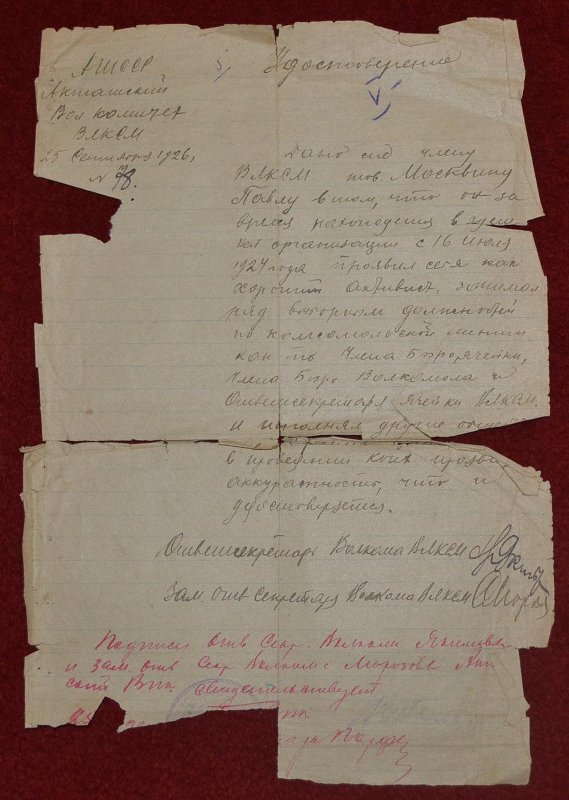 АТССР
Акташский
Вол комитет
ВЛКСМ
25 Сентября 1926,
N 78.
Удостоверение
Дано сие члену
ВЛКСМ тов. Москвину
Павлу в том, что он за
время нахождения в здеш
ней организации с 16 июля
1924 года проявил себя как
хороший активист, занимал
ряд выборных должностей
по комсомольской линии
как то Члена Бюро ячейки,
Члена Бюро Волкомола и
Ответсекретаря ячейки ВЛКСМ,
и исполнял другие
в проведении коих
аккуратность, что и
удостоверяется.
Ответсекретарь Волкома ВЛКСМ
Зам. отв секретаря Волкома ВЛКСМ
Подписи отв Сек. Волкома
и зам. отв Сек Волкома Морозова Ак
ский Вик Свидетельствует